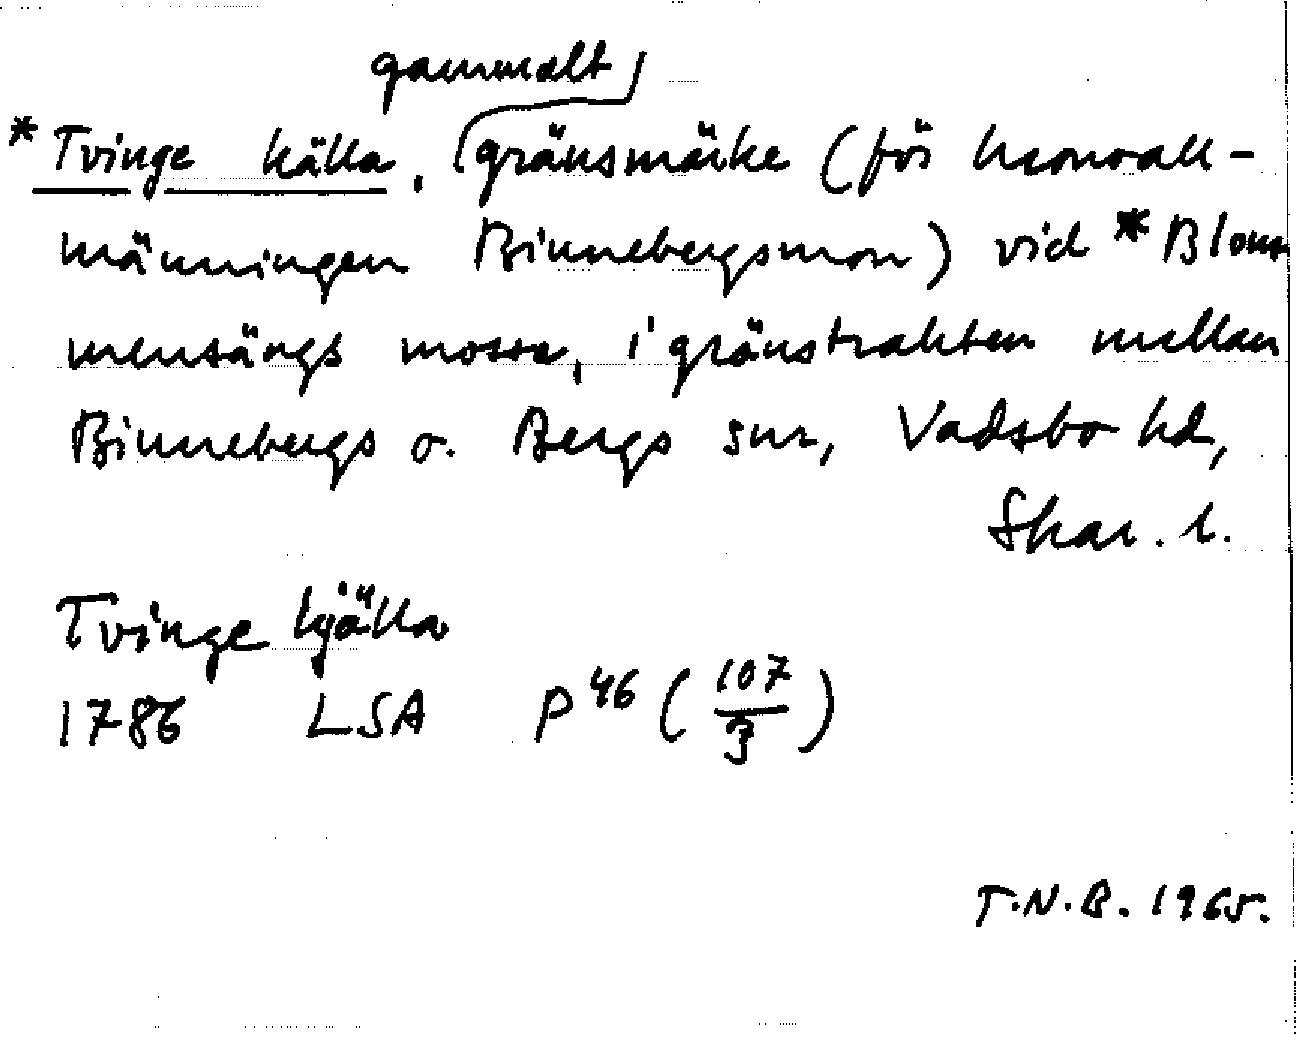 gammalt
*Tvinge källa, gränsmärke (för kronoall-
männingen Binnebergsmon) vid *Blom-
mensängs mosse, i gränstrakten mellan
Binnebergs o. Bergs snr, Vadsbo hd,
Skar. l.
Tvinge kjälla
1786 LSA P 46 (107/3)
T.N.B. 1965.